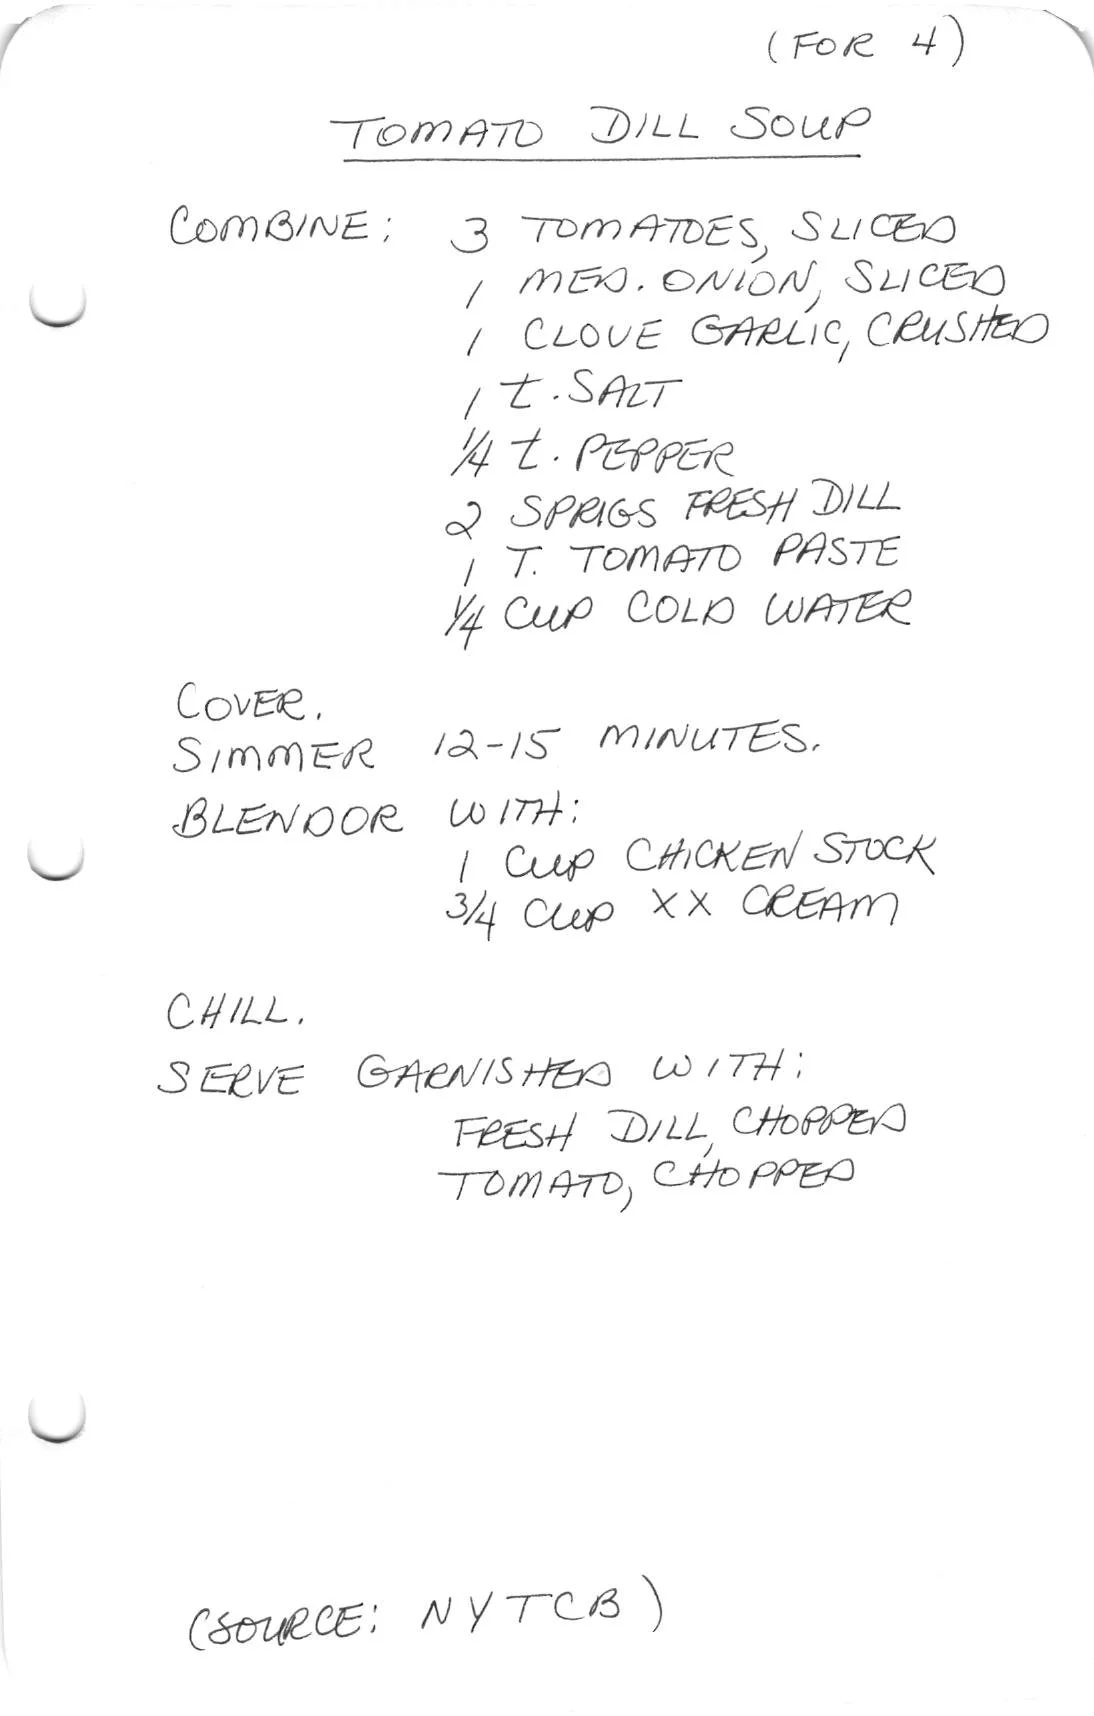 (FOR 4)
TOMATO DILL SOUP
COMBINE: 3 TOMATOES, SLICED
1 MED. ONION, SLICED
1 CLOVE GARLIC, CRUSHED
1 t. SALT
1/4 t. PEPPER
2 SPRIGS FRESH DILL
1 T. TOMATO PASTE
1/4 CUP COLD WATER
COVER.
SIMMER 12-15 MINUTES.
BLENDOR WITH:
1 CUP CHICKEN STOCK
3/4 CUP XX CREAM
CHILL.
SERVE GARNISHED WITH:
FRESH DILL, CHOPPED
TOMATO, CHOPPED
(SOURCE: NYTCB)